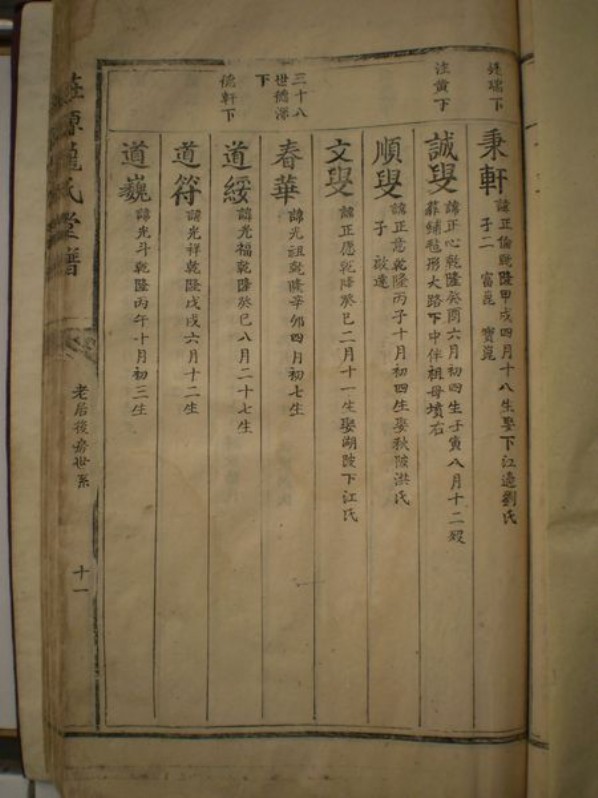 兟瑞下
秉軒
諱正倫乾隆甲戌四月十八生娶下江邊劉氏
子二 富崑 寶崑
注黄下
誠叟
諱正心乾隆癸酉六月初四生壬寅八月十二歿
葬鋪毡形大路下中伴祖母墳右
順叟
諱正意乾隆丙子十月初四生娶秋陂洪氏
子 啟逵
文叟
諱正應乾隆癸巳二月十一生娶湖陂下江氏
三十八
世德深
下
春華
諱光祖乾隆辛卯四月初七生
德軒下
道綏
諱光福乾隆癸巳八月二十七生
道符
諱光祥乾隆戊戌六月十二生
道巍
諱光斗乾隆丙午十月初三生
莊源龍氏堂譜
老居後房世系
十一